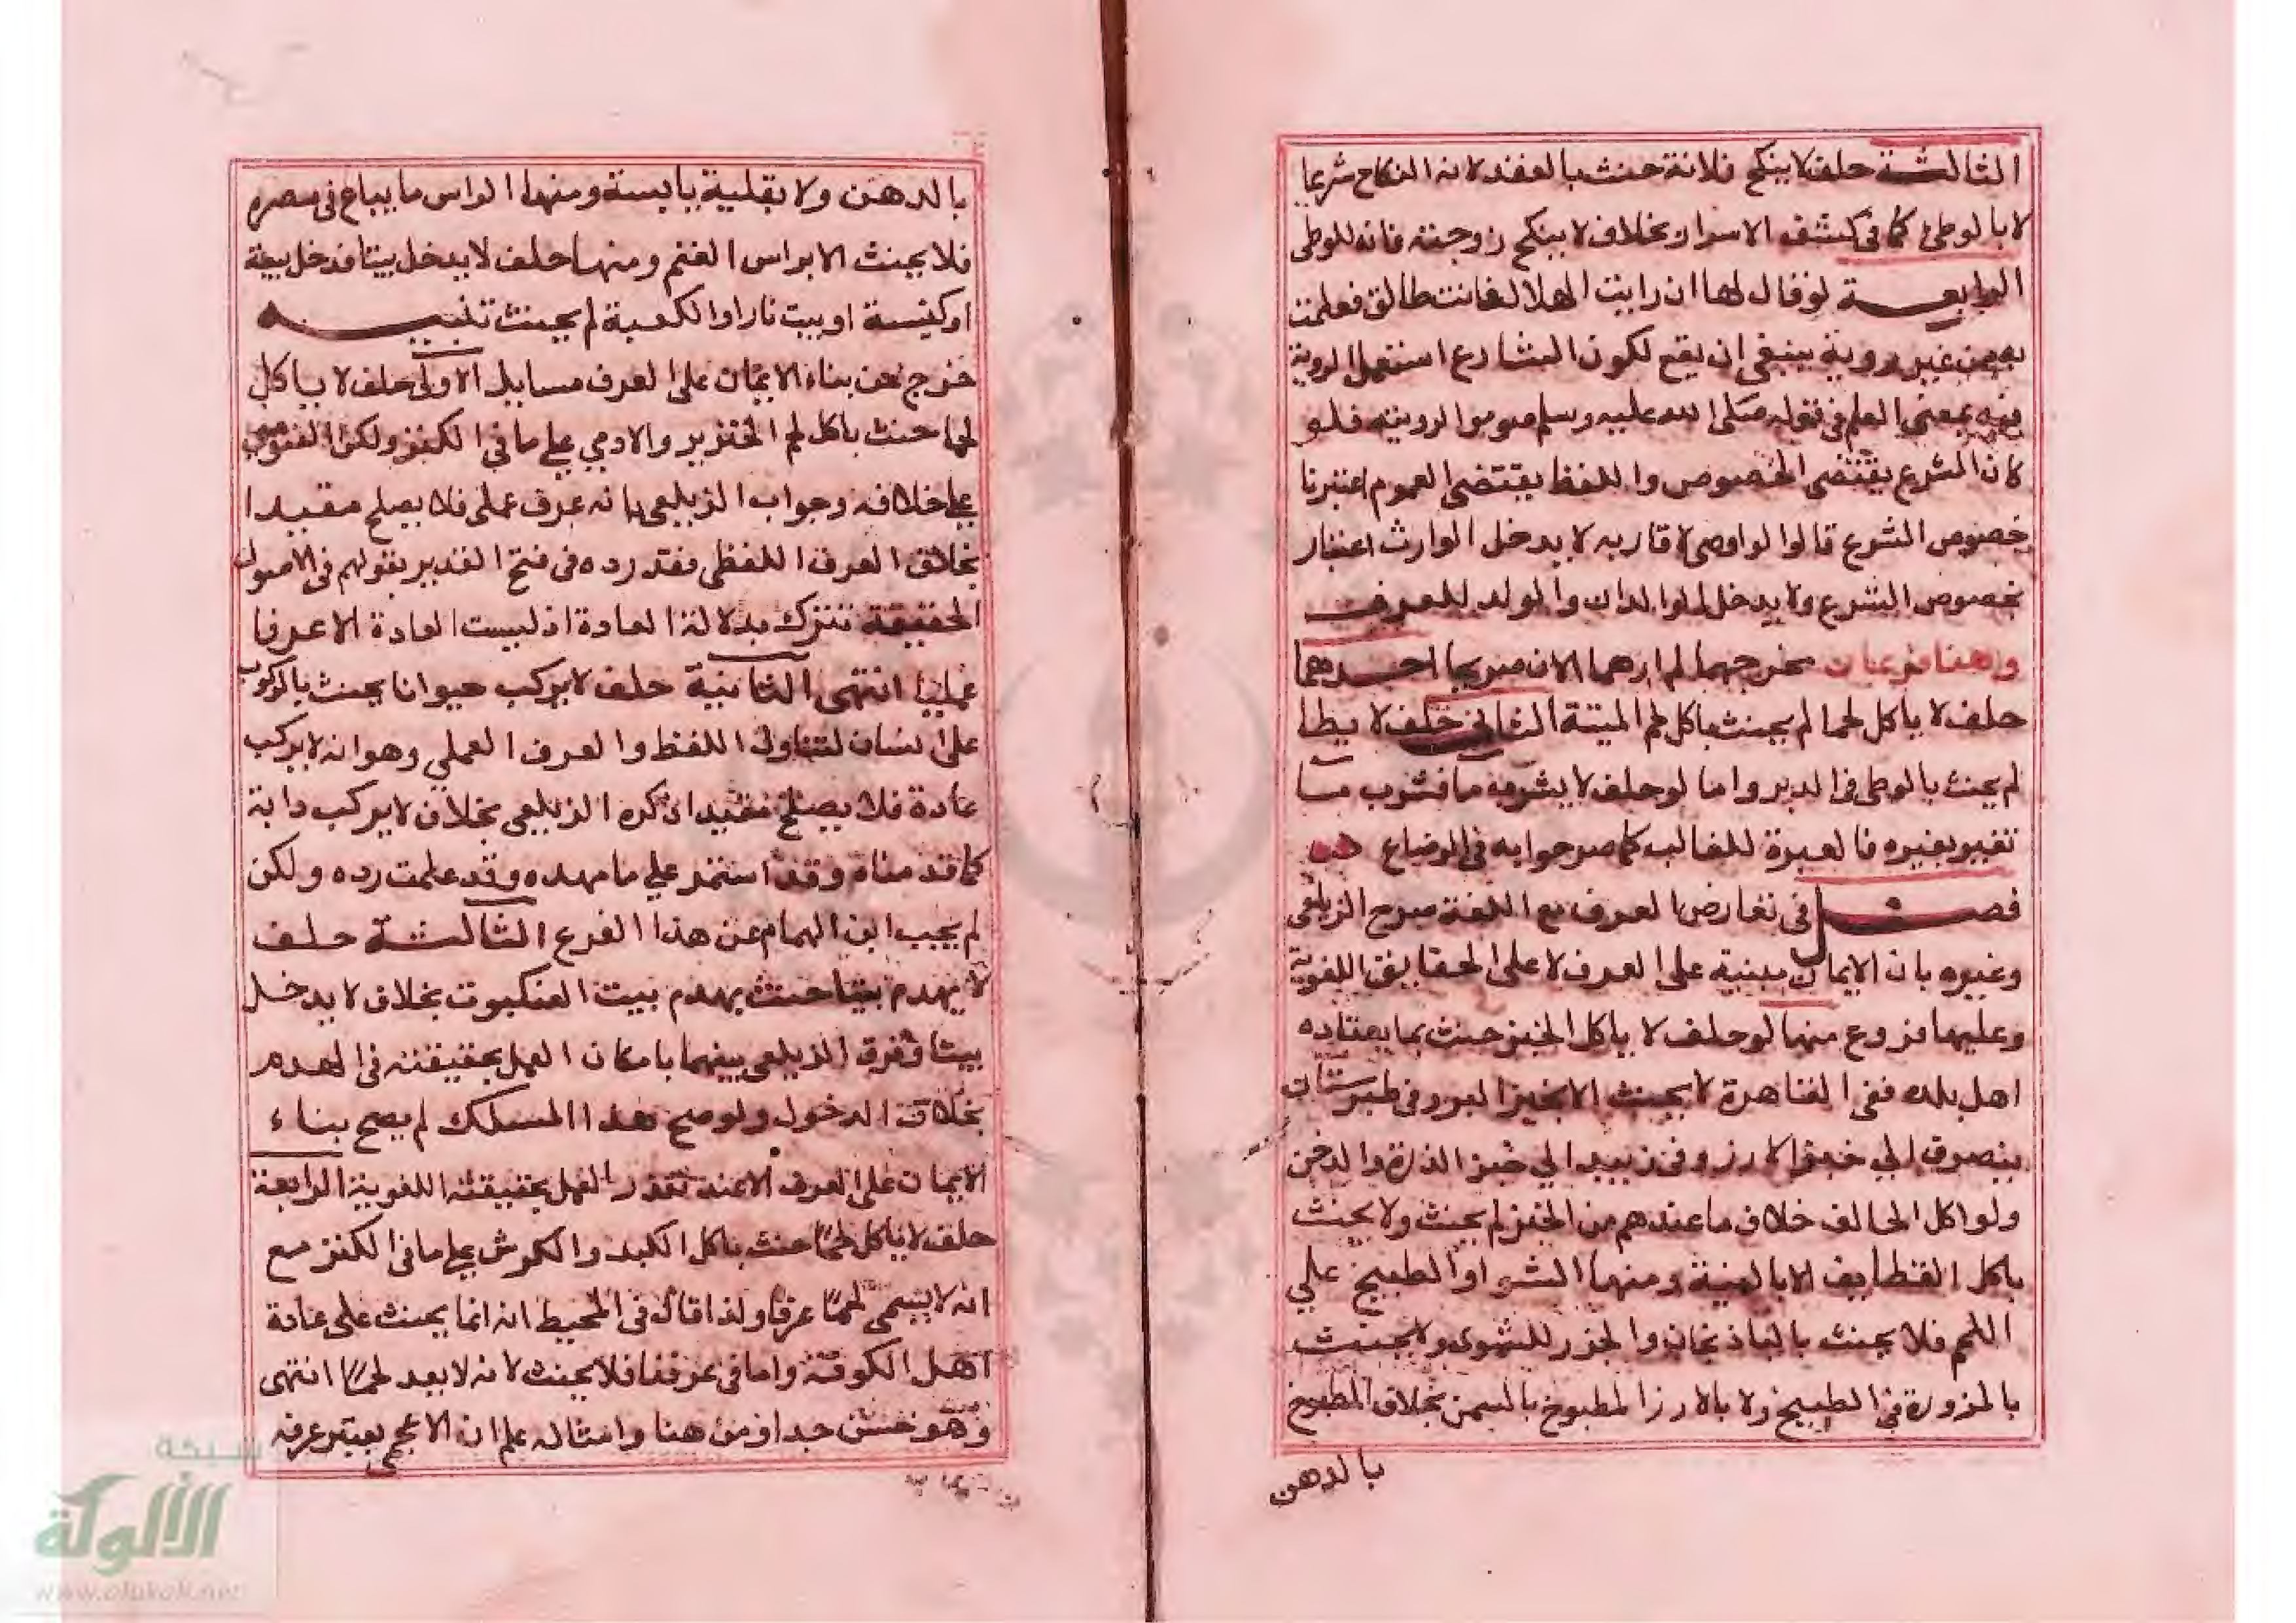 الثالثة حلف لا ينكح فلانة حنث بالعقد لانه النكاح شريعا
لا بالوطئ كما فى كشف الاسرار بخلاف لا ينكح زوجته فانه للوطئ
الرابعة لو قال لها ان رايت الهلال فانت طالق فعلمت
به من غير روية ينبغى ان يقع لكون الشارع استعمل الروية
فيه بمعنى العلم فى قوله صلى الله عليه وسلم صوموا لرويته فلو
كان الشرع يقتضى الخصوص واللفظ يقتضى العموم اعتبرنا
خصوص الشرع قالوا لو اوصى لاقاربه لا يدخل الوارث اعتبار
بخصوص الشرع ولا يدخل الوالدان والولد للعرف
وهنا فرعيان مخرجهما لم ارهما الان صريحا احدهما
حلف لا ياكل لحما لم يحنث باكل لحم الميتة الثانى حلف لا يطا
لم يحنث بالوطى فى الدبر واما لو حلف لا يشرب ما فشرب ما
تغير بغيره فالعبرة للغالب كما صرحوا به فى الرضاع
فصل فى تعارض العرف مع اللغة صرح الزيلعى
وغيره بان الايمان مبنية على العرف لا على الحقايق اللغوية
وعليها فروع منها لو حلف لا ياكل الخبز حنث بما يعتاده
اهل بلده ففى القاهرة لا يحنث الا بخبز البر وفى طبرستان
ينصرف الي خبز الارز وفى زبيد الي خبز الذرة والدخن
ولو اكل الحالف خلاف ما عندهم من الخبز لم يحنث ولا يحنث
باكل القطايف الا بالنية ومنها الشوا والطبيخ علي
اللحم فلا يحنث بالباذنجان والجزر للشوى ولا يحنث
بالمزورة فى الطبيخ ولا بالارز المطبوخ بالسمن بخلاف المطبوخ
بالدهن
بالدهن ولا بقلية يابسة ومنها الراس ما يباع فى مصره
فلا يحنث الا براس الغنم ومنها حلف لا يدخل بيتا فدخل بيعة
او كنيسة او بيت نار او الكعبة لم يحنث تنبيه
خرج عن بناء الايمان على العرف مسايل الاولى حلف لا ياكل
لحما حنث باكل لحم الخنزير والادمي علي ما فى الكنز ولكن الفتوى
علي خلافه وجواب الزيلعى بانه عرف عملى فلا يصلح مقيدا
بخلاف العرف اللفظى فقد رده فى فتح القدير بقولهم فى الاصول
الحقيقة تترك بدلالة العادة اذ ليست العادة الا عرفا
عمليا انتهى الثانية حلف لا يركب حيوانا يحنث بالركوب
على انسان لتناول اللفظ والعرف العملي وهو انه لا يركب
عادة فلا يصلح مقيدا ذكره الزيلعى بخلاف لا يركب دابة
كما قدمناه وقد استمر علي ما مهده وقد علمت رده ولكن
لم يجب ابن الهمام عن هذا الفرع الثالثة حلف
لا يهدم بيتا حنث بهدم بيت العنكبوت بخلاف لا يدخل
بيتا وفرق الزيلعى بينهما بامكان العمل بحقيقته فى الهدم
بخلاف الدخول ولو صح هذا المسلك لم يصح بناء
الايمان على العرف الا عند تعذر العمل بحقيقته اللغوية الرابعة
حلف لا ياكل لحما حنث باكل الكبد والكرش علي ما فى الكنز مع
انه لا يسمى لحما عرفا ولذا قال فى المحيط انه انما يحنث على عادة
اهل الكوفة واما فى عرفنا فلا يحنث لانه لا يعد لحما انتهى
وهو حسن جدا ومن هنا وامثاله علم ان الاعجمى يعتبر عرفه
شبكة
الألوكة
www.alukah.net